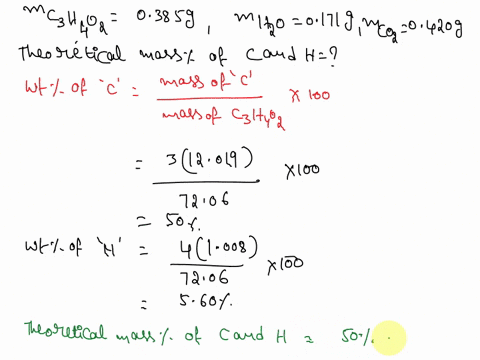 mC3H4O2 = 0.385g, mH2O = 0.171g, mCO2 = 0.420g
Theoretical mass% of C and H = ?
Wt% of 'C' = mass of 'C' / mass of C3H4O2 × 100
= 3(12.019) / 72.06 × 100
= 50%
Wt% of 'H' = 4(1.008) / 72.06 × 100
= 5.60%
Theoretical mass% of C and H = 50%